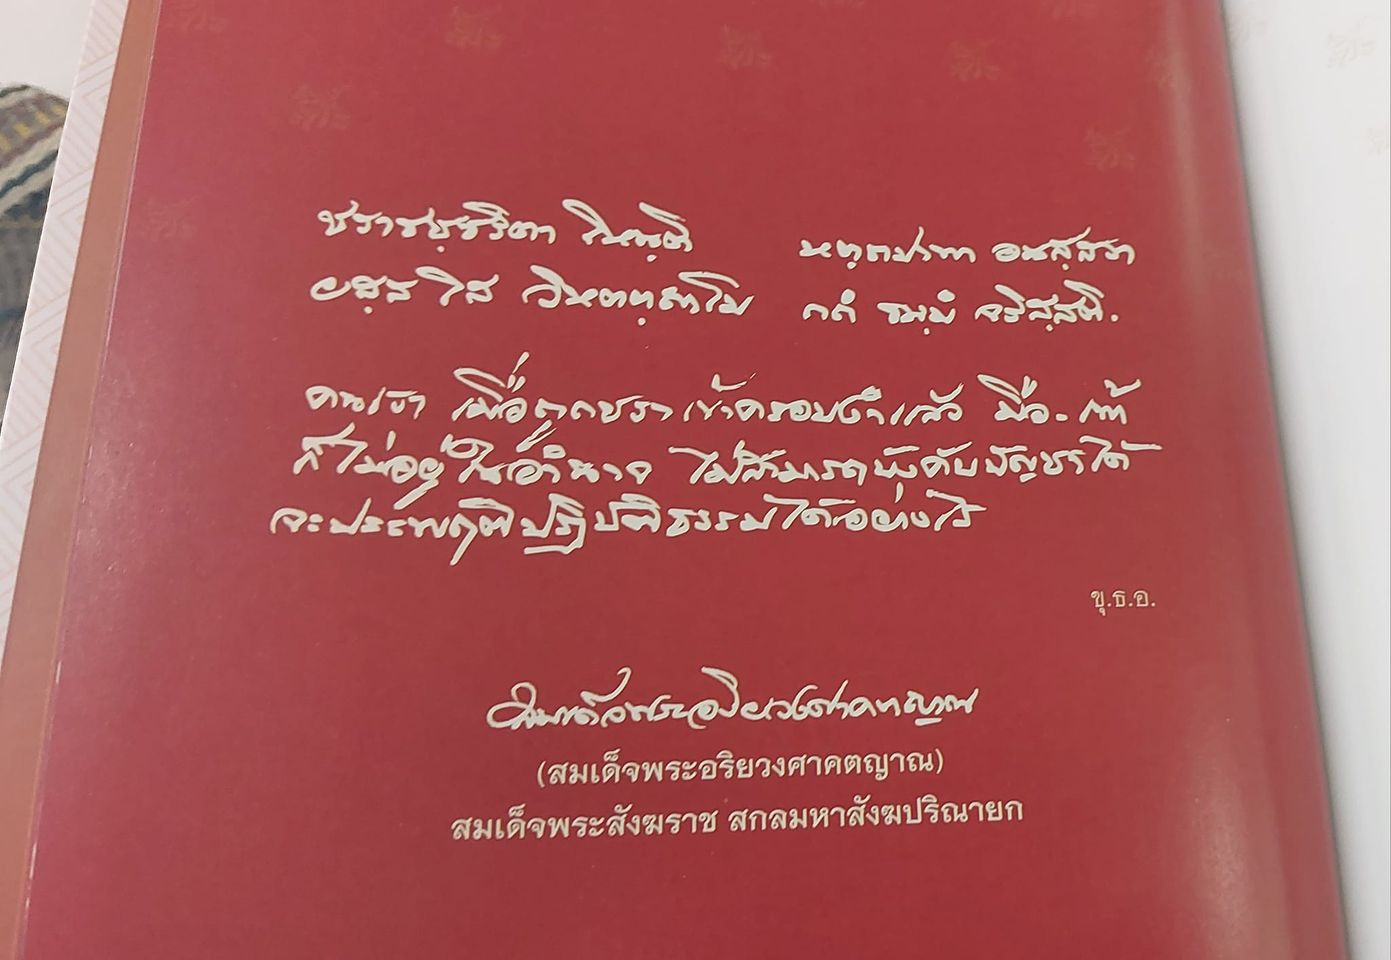 ชราชชฺชริตา โหนฺติ หตฺถปาทา อนสฺสวา
ยสฺส โส วิหตตฺถาโม กถํ ธมฺมํ จริสฺสติ.
คนเรา เมื่อถูกชราเข้าครอบงำแล้ว มือ-เท้า
ก็ไม่อยู่ในอำนาจ ไม่สามารถบังคับบัญชาได้
จะประพฤติปฏิบัติธรรมได้อย่างไร
ขุ.ธ.อ.
สมเด็จพระอริยวงศาคตญาณ
(สมเด็จพระอริยวงศาคตญาณ)
สมเด็จพระสังฆราช สกลมหาสังฆปริณายก